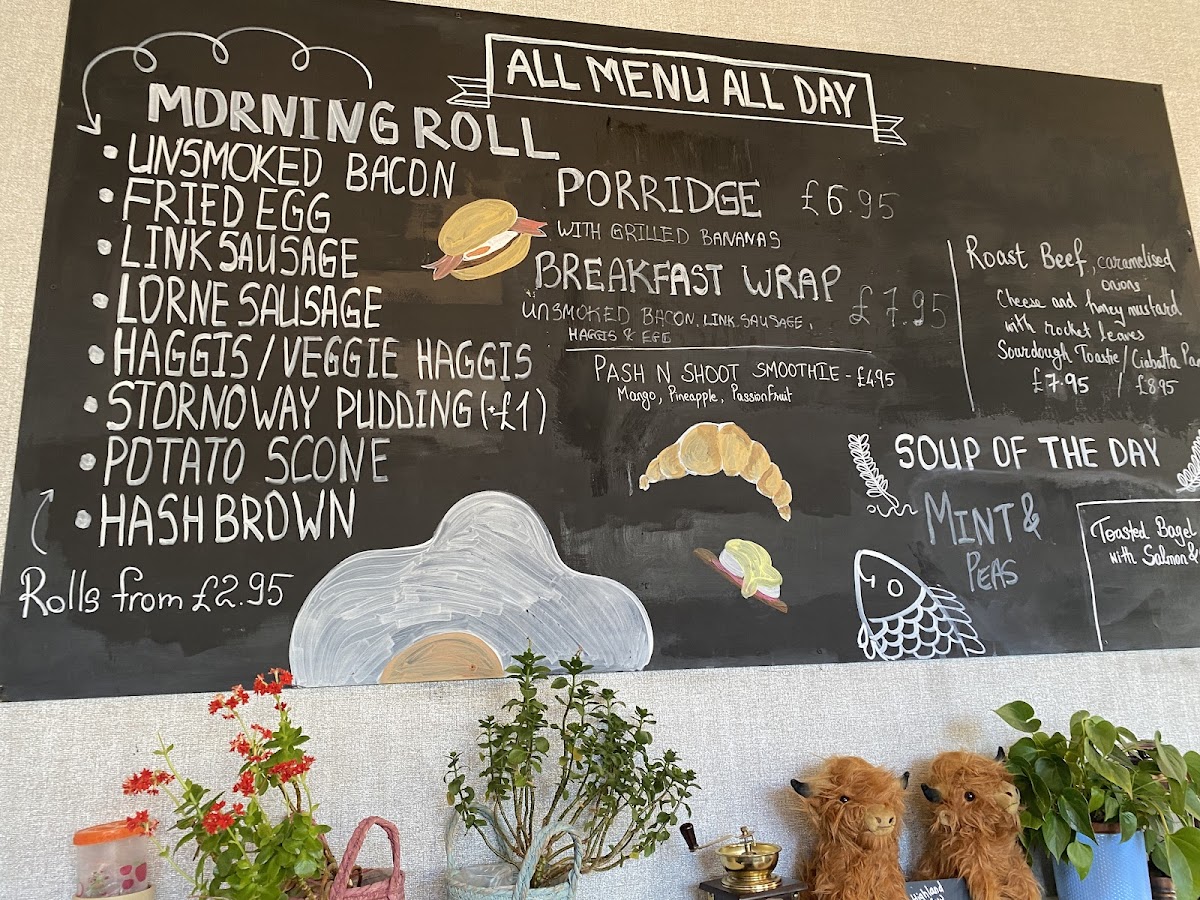 ALL MENU ALL DAY
MORNING ROLL
UNSMOKED BACON
FRIED EGG
LINK SAUSAGE
LORNE SAUSAGE
HAGGIS/VEGGIE HAGGIS
STORNOWAY PUDDING (+£1)
POTATO SCONE
HASH BROWN
Rolls from £2.95
PORRIDGE £6.95
WITH GRILLED BANANAS
BREAKFAST WRAP £7.95
UNSMOKED BACON, LINK SAUSAGE,
HAGGIS & EGG
PASH N SHOOT SMOOTHIE - £4.95
Mango, Pineapple, Passionfruit
Roast Beef, caramelised
onions
Cheese and honey mustard
with rocket leaves
Sourdough Toastie / Ciabatta
£7.95 / £8.95
SOUP OF THE DAY
MINT &
PEAS
Toasted Bagel
with Salmon &
Highland